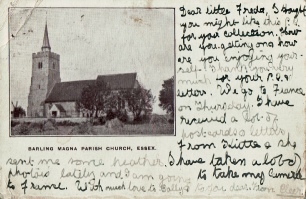 Dear little Freda, I thought
you might like this P.C
for your collection. How
are you getting on & how
are you enjoying your
self. Thank you very
much for your P.C's &
letters. We go to France
on Thursday. I have
received a lot of
postcards & letters
from
BARLING MAGNA PARISH CHURCH, ESSEX.
sent me some heather. I have taken a lot of
photos lately and I am going to take my camera
to France. With much love to